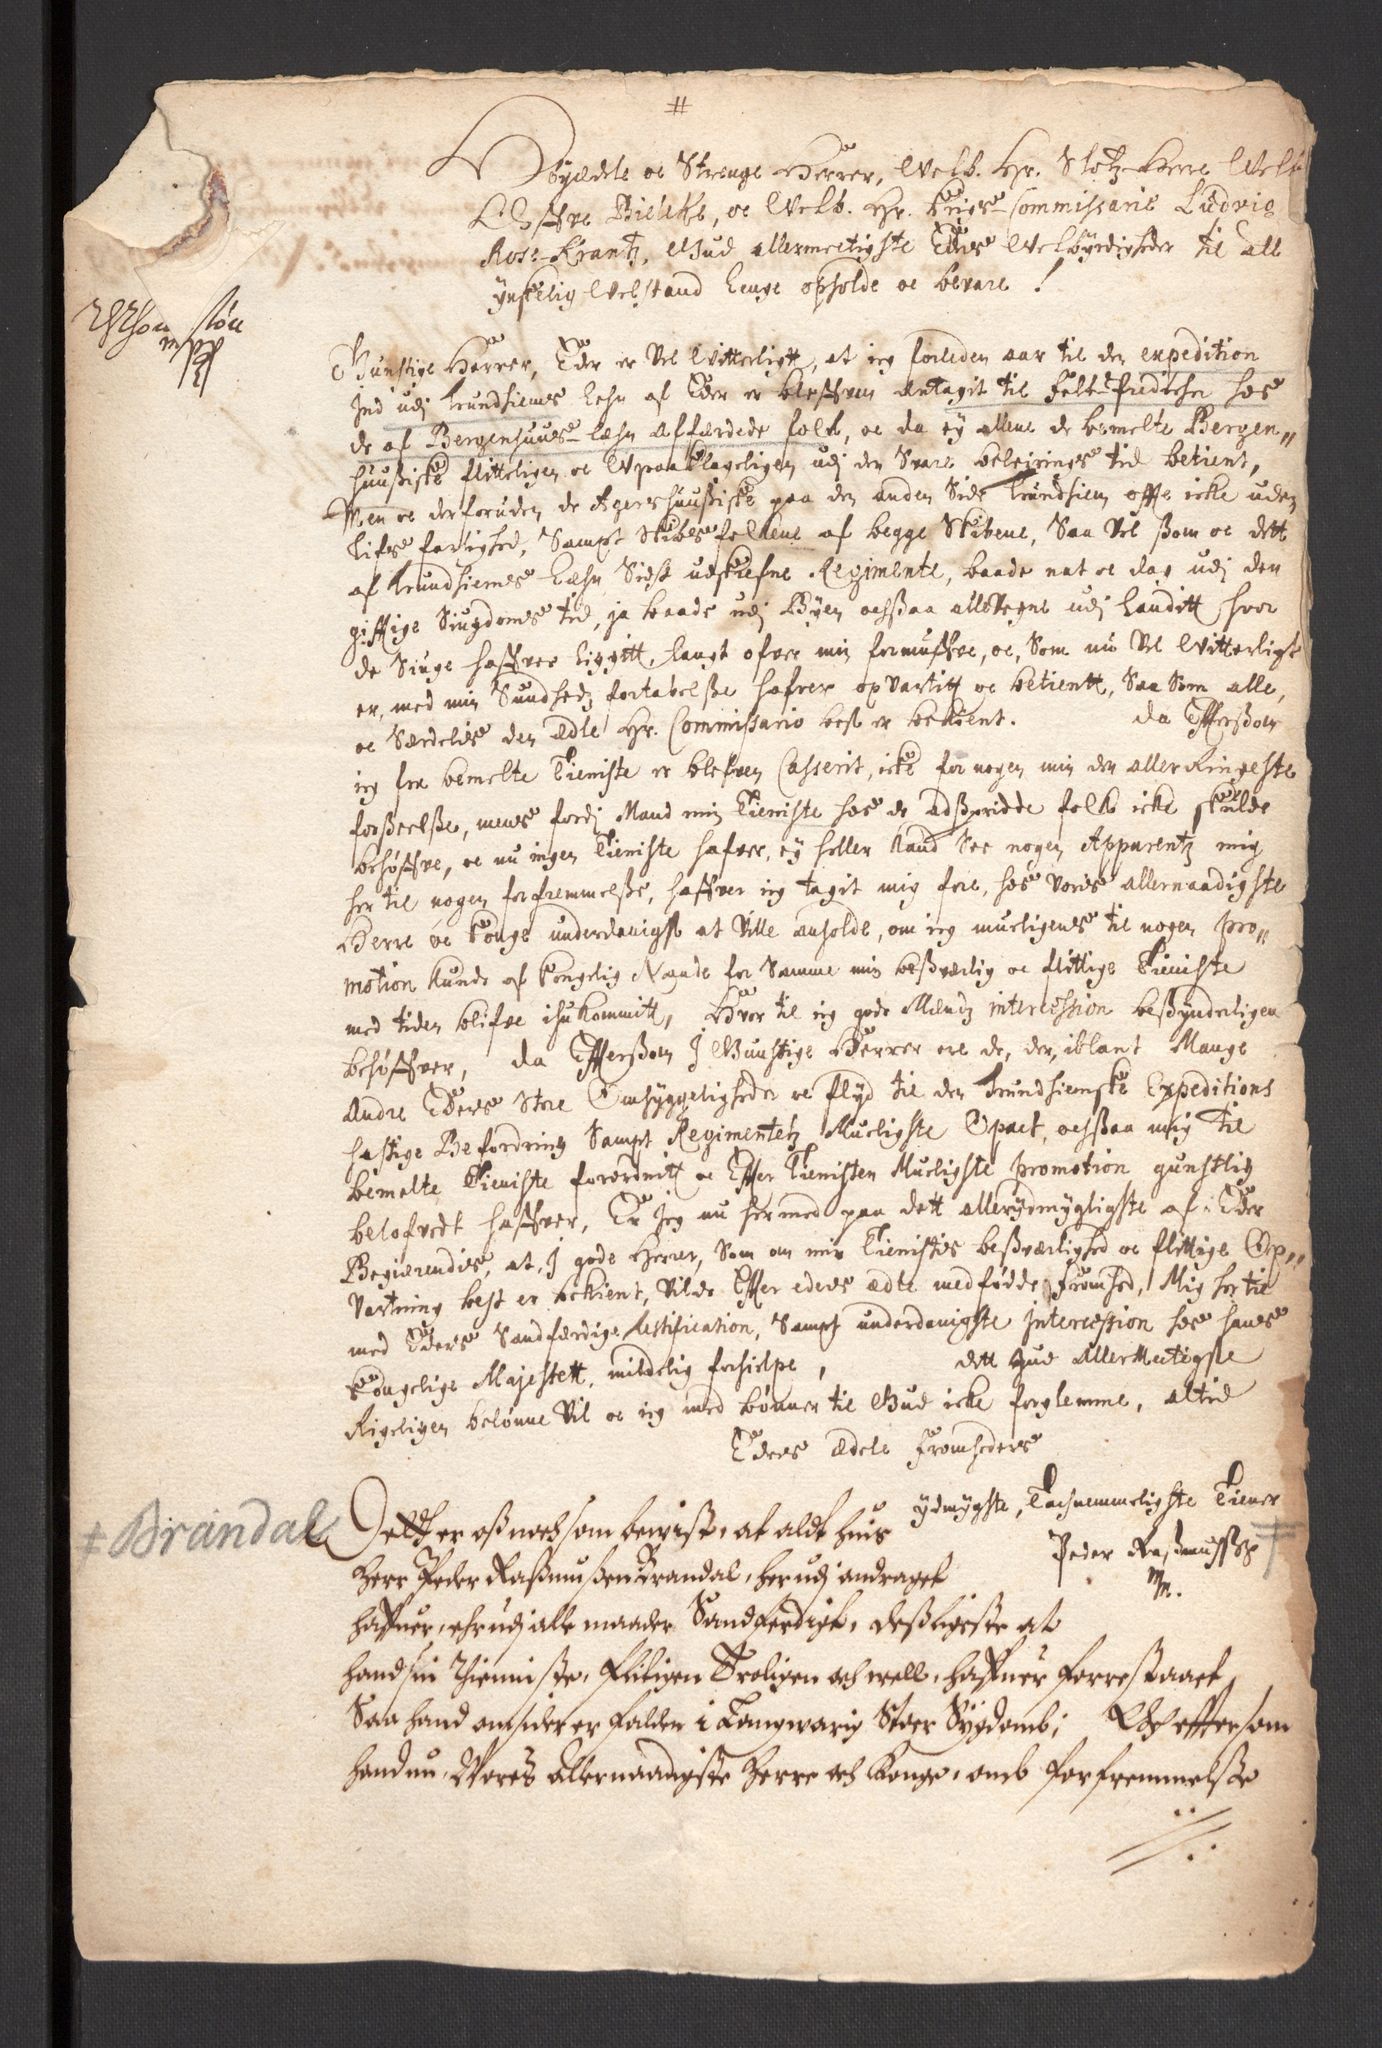 #
Høyædle oc Strenge Herrer, Welb. Hr. Slotz-Herre Welb.
Offve Bielche, oc Welb. Hr. Krigs-Commissarie Ludvig
Rose-Krantz, Gud allermectigste Eders Welbyrdigheder til all
ynskelig Velstand lenge opholde oc bevare!
Gunstige Herrer, Eder er Vel Vitterligtt, at ieg forleden aar til den expedition
Ind udj Trundhiems Lehn af Eder er bleffven Antagit til Felt-Predicher hos
de af Bergenhuus-Læhn Affærdede folk, oc da ey allene de bemelte Bergen,,
huussiske flitteligen oc Upaaklageligen udj den Svare beleirings tid betient,
Men oc derforuden de Agershuussiske paa den anden Side Trundhiem offte icke uden
Lifs farlighed, Sampt Skibsfolckene af begge Skibene, Saa Vel ssom oc dett
af Trundhiems Læhn Sidst udskrefne Regimente, baade nat oc dag udj den
gifftige Siugdoms tid, ja baade udj Byen ochssaa alleVegne udj Landitt hvor
de Siuge haffver liggitt, langt ofver min formuffve, oc, Som nu Vel Vitterligt
er, med min Sundhedz fortabelsse hafver opVartitt oc betientt, Saa Som alle,
oc Særdelis den ædle Hr. Commissario best er bekient. da Effterssom
ieg fra bemelte Tieniste er blefven Casserit, icke for nogen min den allerRingeste
forsseelsse, mens fordj Mand min Tieniste hos de adsspridde folk icke skulde
behøffve, oc nu ingen Tieniste hafver, ey heller kand See nogen Apparentz mig
her til nogen forfremmelsse, haffver ieg tagit mig fore, hos Vores allernaadigste
Herre oc Konge underdanigst at Ville anholde, om ieg mueligens til nogen pro,,
motion kunde af Kongelig Naade for Samme min bessværlig oc flittige Tieniste
med tiden blifve ihukommitt, Hvor til ieg gode Mændz intercession bessynderligen
behøffver, da Effterssom J Gunstige Herrer ere de, der, iblant Mange
Andre Eders Store Omhyggeligheder oc flyd til den Trundhiemske Expeditions
hastige Befordring Sampt Regimentetz Mueligste Opact, ochssaa mig til
bemelte Tieniste forordnitt oc Effter Tienisten Mueligste promotion gunstlig
belofvedt haffver, Er Jeg nu hermed paa dett allerydmygligste af Eder
Begierendis, at, J gode Herrer, Som om min Tienistis bessværlighed oc flittige Op,,
Vartning best er bekient, Vilde Effter eders ædle medfødde fromhed, Mig hertil
med Eders Sandfærdige Testification, Sampt underdanigste intercession hos hans
Kongelige Majestett, mildelig forhielpe, dett Gud AllerMectigste
Rigeligen belønne Vil oc ieg med bønner til Gud icke forglemme, altid
Eders Ædele fromheders
ydmygste, Tachnemmeligste Tiener
Peder Rassmussen
m.
# Brandal
Dett er oss noch som bewist, at aldt huis
Herr Peder Rassmussen Brandal, herudj andraget
haffuer, ehr udj alle maader Sandferdigt, dessligeste at
hand sin Thienniste, flitigen Troligen och well, haffuer forrestaaet,
Saa hand omsider er falden i Langwarig Stoer Sygdomb; Och effter som
hand nu, Vores allernaadigste Herre och Konge, omb forfremmelsse